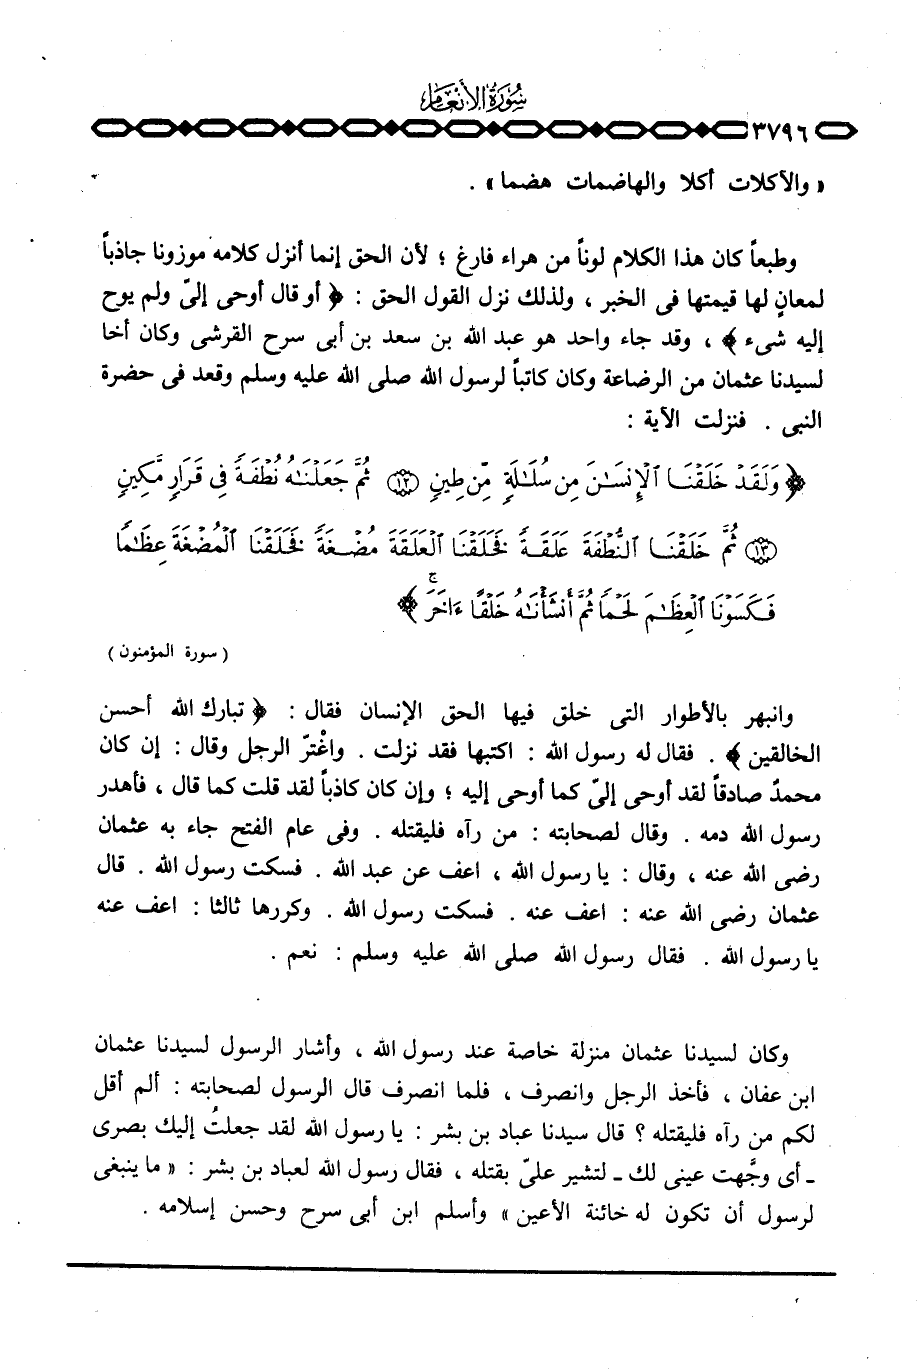 سورة الأنعام
٣٧٩٦
« والأكلات أكلا والهاضمات هضما » .
وطبعاً كان هذا الكلام لوناً من هراء فارغ ؛ لأن الحق إنما أنزل كلامه موزونا جاذباً
لمعانٍ لها قيمتها فى الخبر ، ولذلك نزل القول الحق : ﴿ أو قال أوحى إلىّ ولم يوح
إليه شىء ﴾ ، وقد جاء واحد هو عبد الله بن سعد بن أبى سرح القرشى وكان أخا
لسيدنا عثمان من الرضاعة وكان كاتباً لرسول الله صلى الله عليه وسلم وقعد فى حضرة
النبى . فنزلت الآية :
﴿ وَلَقَدْ خَلَقْنَا ٱلْإِنسَـٰنَ مِن سُلَـٰلَةٍ مِّن طِينٍ ١٢ ثُمَّ جَعَلْنَـٰهُ نُطْفَةً فِى قَرَارٍ مَّكِينٍ
١٣ ثُمَّ خَلَقْنَا ٱلنُّطْفَةَ عَلَقَةً فَخَلَقْنَا ٱلْعَلَقَةَ مُضْغَةً فَخَلَقْنَا ٱلْمُضْغَةَ عِظَـٰمًا
فَكَسَوْنَا ٱلْعِظَـٰمَ لَحْمًا ثُمَّ أَنشَأْنَـٰهُ خَلْقًا ءَاخَرَ ۚ ﴾
( سورة المؤمنون )
وانبهر بالأطوار التى خلق فيها الحق الإنسان فقال : ﴿ تبارك الله أحسن
الخالقين ﴾ . فقال له رسول الله : اكتبها فقد نزلت . واغْترّ الرجل وقال : إن كان
محمدٌ صادقاً لقد أوحى إلىّ كما أوحى إليه ؛ وإن كان كاذباً لقد قلت كما قال ، فأهدر
رسول الله دمه . وقال لصحابته : من رآه فليقتله . وفى عام الفتح جاء به عثمان
رضى الله عنه ، وقال : يا رسول الله ، اعف عن عبد الله . فسكت رسول الله . قال
عثمان رضى الله عنه : اعف عنه . فسكت رسول الله . وكررها ثالثا : اعف عنه
يا رسول الله . فقال رسول الله صلى الله عليه وسلم : نعم .
وكان لسيدنا عثمان منزلة خاصة عند رسول الله ، وأشار الرسول لسيدنا عثمان
ابن عفان ، فأخذ الرجل وانصرف ، فلما انصرف قال الرسول لصحابته : ألم أقل
لكم من رآه فليقتله ؟ قال سيدنا عباد بن بشر : يا رسول الله لقد جعلتُ إليك بصرى
ـ أى وجَّهت عينى لك ـ لتشير علىّ بقتله ، فقال رسول الله لعباد بن بشر : « ما ينبغى
لرسول أن تكون له خائنة الأعين » وأسلم ابن أبى سرح وحسن إسلامه .